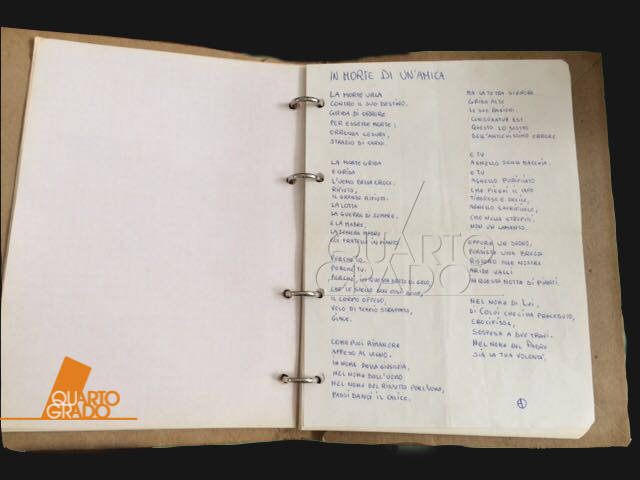 IN MORTE DI UN'AMICA
LA MORTE URLA
CONTRO IL SUO DESTINO.
GRIDA DI ORRORE
PER ESSERE MORTE:
ORRENDA CESURA,
STRAZIO DI CARNI.
LA MORTE GRIDA
E GRIDA
L'UOMO DELLA CROCE.
RIFIUTO,
IL GRANDE RIFIUTO.
LA LOTTA
LA GUERRA DI SEMPRE.
E LA MADRE,
LA TENERA MADRE
COI FRATELLI IN PIANTO.
PERCHÉ IO.
PERCHÉ TU.
PERCHÉ, IN QUESTA NOTTE DI GELO,
CHE LE STELLE SON COSÌ BELLE,
IL CORPO OFFESO,
VELO DI TEMPIO STRAPPATO,
GIACE.
COME PUOI RIMANERE
APPESO AL LEGNO.
IN NOME DELLA GIUSTIZIA,
NEL NOME DELL'UOMO
NEL NOME DEL RISPETTO PER L'UOMO,
PASSI DA NOI IL CALICE.
MA LA TETRA SIGNORE
GRIDA ALTE
LE SUE RAGIONI.
CONSUMATUM EST
QUESTO LO SCOTTO
DELL'ANTICHISSIMO ERRORE
E TU
AGNELLO SENZA MACCHIA.
E TU
AGNELLO PURIFICATO
CHE PIEGHI IL CAPO
TIMOROSO E DOCILE,
AGNELLO SACRIFICALE,
CHE NULLA STREPITI.
NON UN LAMENTO.
EPPURE UN SUONO,
PERSISTE UNA BREZZA
RISUONO ALLE NOSTRE
ARIDE VALLI
IN QUESTA NOTTE DI PIANTI.
NEL NOME DI LUI,
DI COLUI CHE CI HA PRECEDUTO,
CROCIFISSA,
SOSPESA A DUE TRAVI.
NEL NOME DEL PADRE
SIA LA TUA VOLONTÀ.
QUARTO
GRADO
QUARTO
GRADO